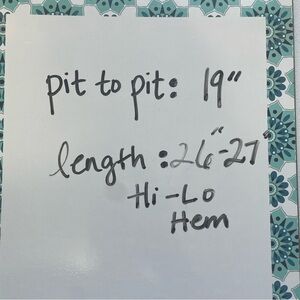 pit to pit: 19"
length: 26"-27"
Hi-Lo
Hem